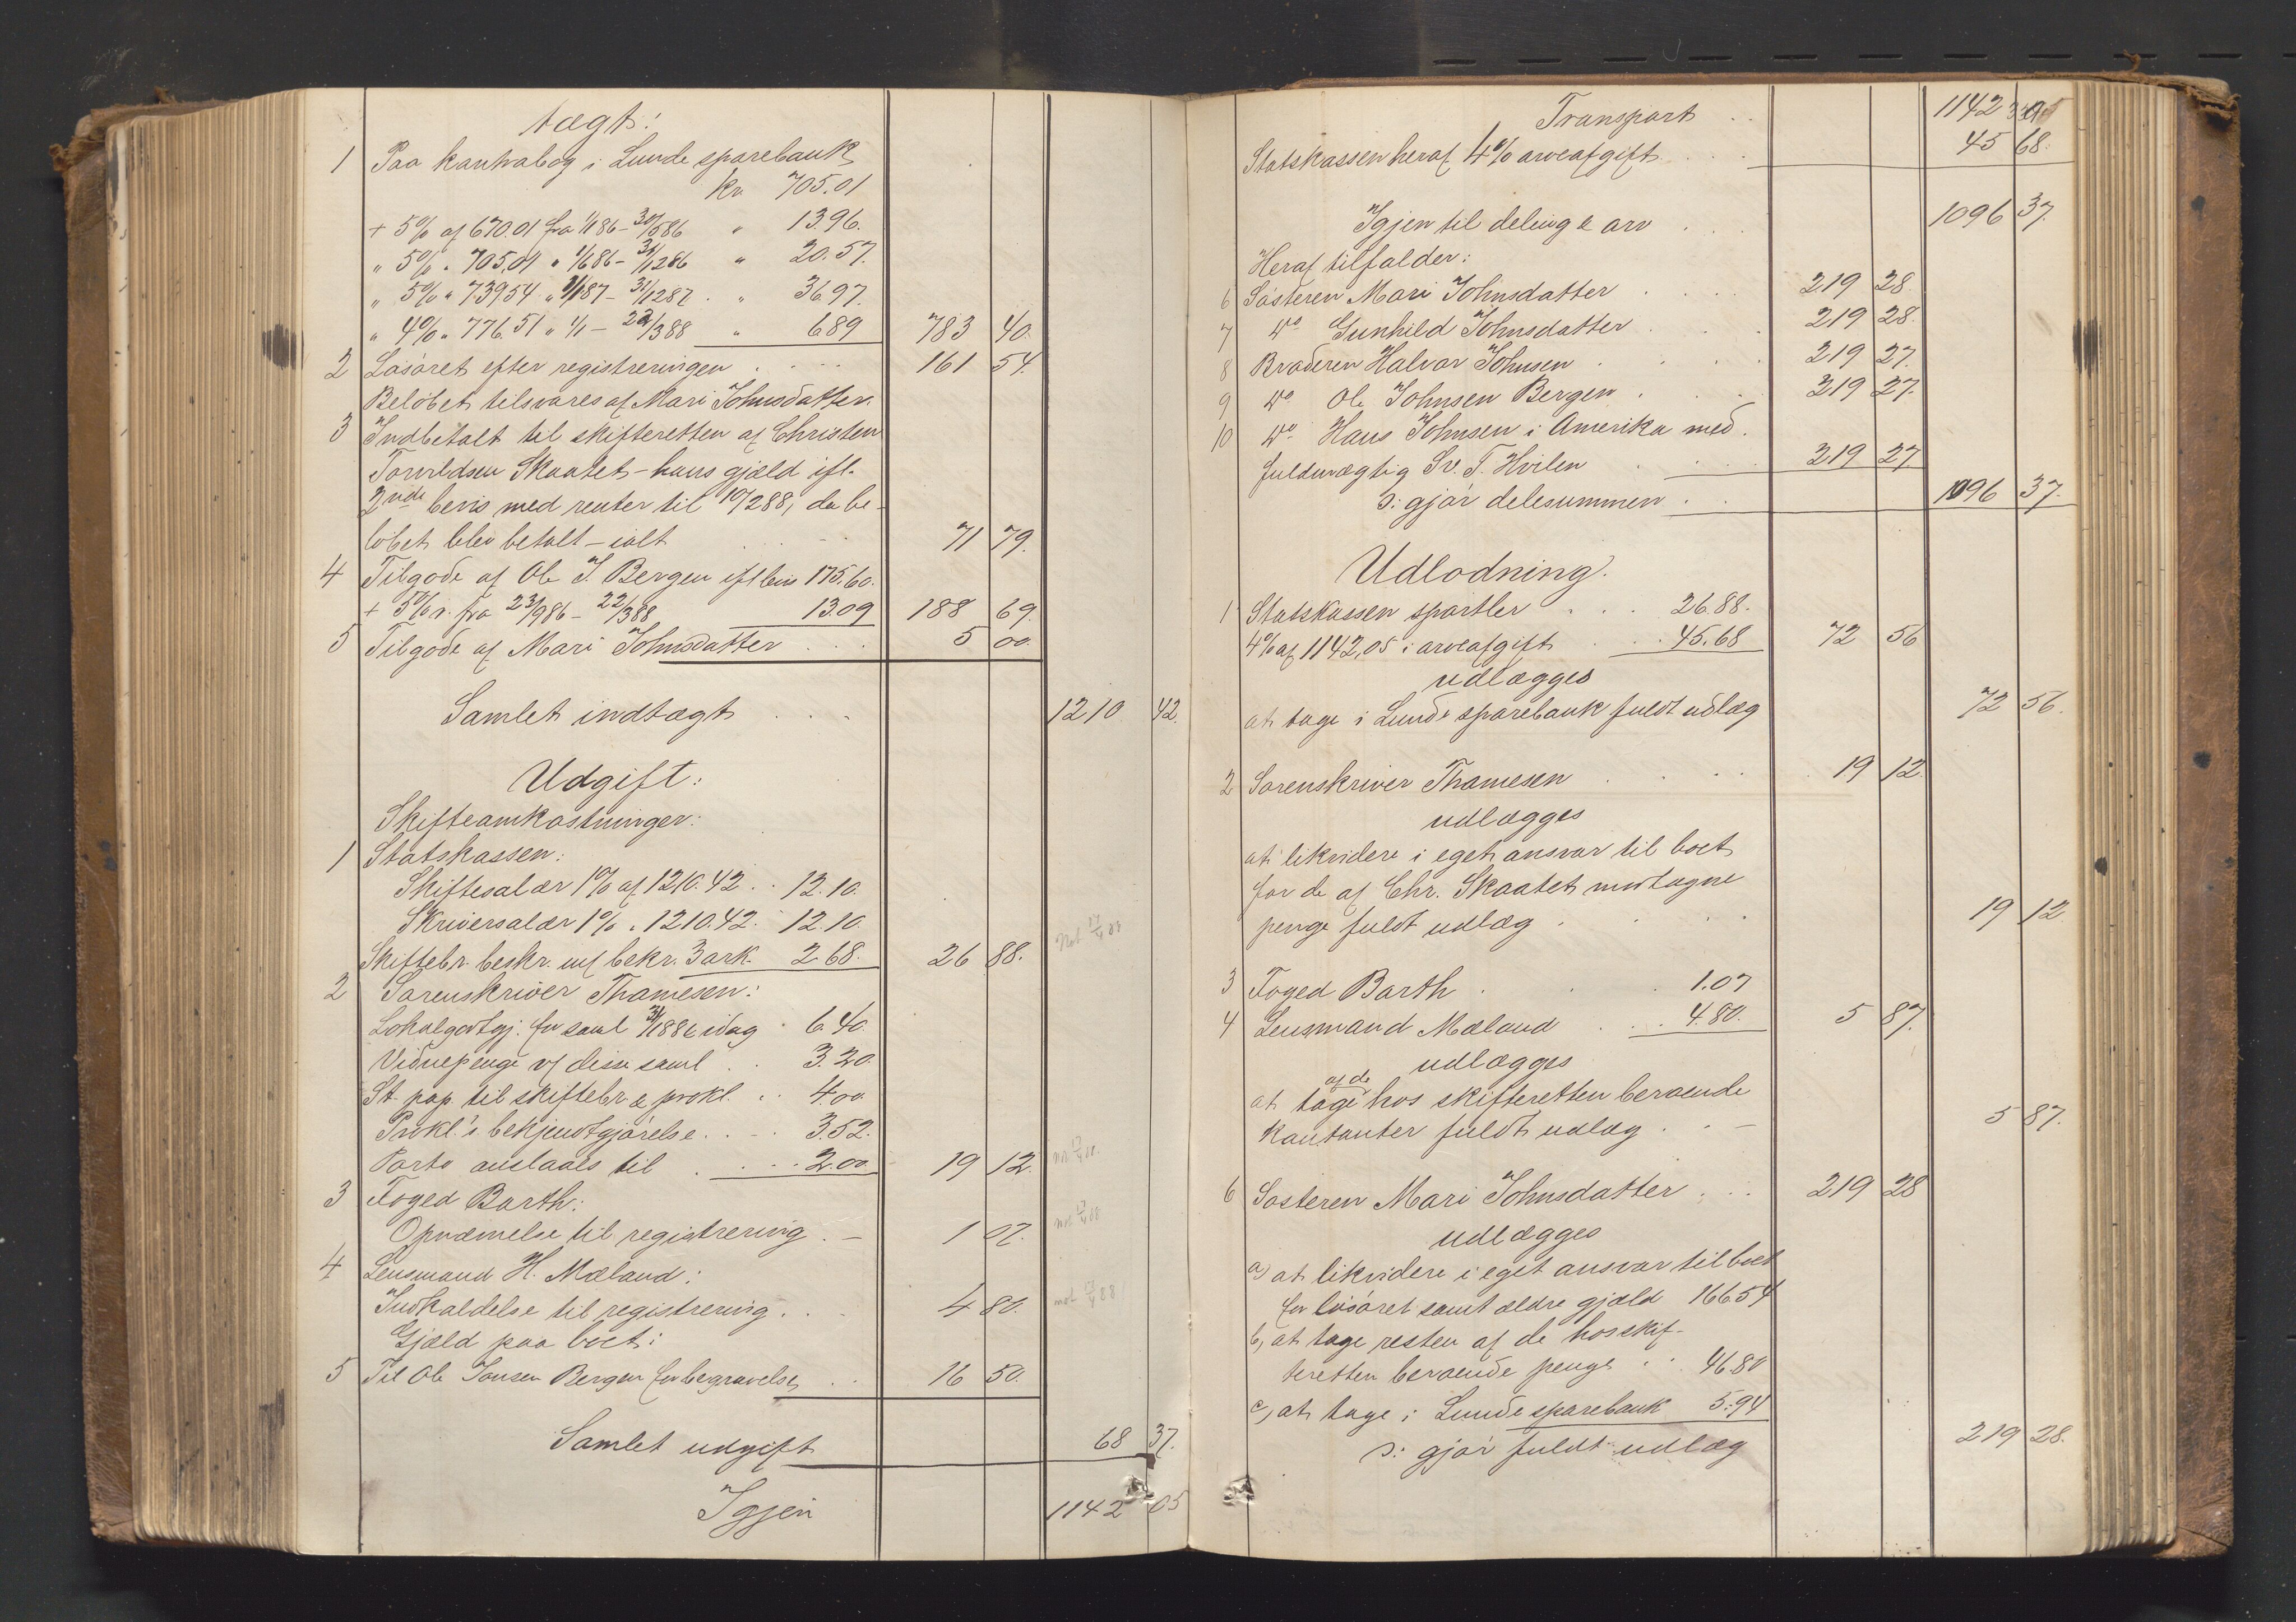 tægt:
1 Paa kontrabog i Lunde sparebank
kr. 705.01
+ 5% af 670.01 fra 1/1 86 - 30/5 86 " 13.96.
" 5% " 705.01 " 1/6 86 - 31/12 86 " 20.57.
" 5% " 739.54 " 1/1 87 - 31/12 87 . " 36.97.
" 4% " 776.51 " 1/1 - 22/3 88 " 6.89 783 40.
2 Løsøret efter registreringen . . . . 161 54.
Beløbet tilsvares af Mari Johnsdatter.
3 Indbetalt til skifteretten af Christen
Torvildsen Skaatet - hans gjæld ifl.
2nde bevis med renter til 10/2 88, da be-
løbet blev betalt - ialt 71 79.
4 Tilgode af Ole J. Bergen ifl bevis 175.60.
+ 5% r. fra 23/9 86 - 22/3 88 13.09 188 69.
5 Tilgode af Mari Johnsdatter . . . 5 00.
Samlet indtægt . . . . 1210 42.
Udgift:
Skifteomkostninger:
1 Statskassen:
Skiftesalær 1% af 1210.42 . . 12.10.
Skriversalær 1% " 1210.42. 12.10.
Skiftebr. beskr. m/ bekr. 3 ark. 2.68. 26 88.
2 Sorenskriver Thomesen:
Lokalgodtgj. for saml 31/1 88 & idag . 6.40.
Vidnepenge v/ disse saml . . 3.20.
St. pap. til skiftebr. & prokl. . . 4.00.
Prokl.'s bekjendtgjørelse . . - . 3.52.
Porto anslaaes til . . . . 2.00. 19 12.
3 Foged Barth:
Opnævnelse til registrering . - 1 07.
4 Lensmand H. Mæland:
Indkaldelse til registrering . . . 4 80.
Gjæld paa boet:
5 Til Ole Jonsen Bergen for begravelse . . 16 50.
Samlet udgift 68 37.
Igjen 1142 05
Transport . . 1142 05
Statskassen heraf 4% arveafgift . . . 45 68.
Igjen til deling & arv . . . 1096 37.
Heraf tilfalder:
6 Søsteren Mari Johnsdatter . . . . 219 28.
7 do Gunhild Johnsdatter . . . 219 28.
8 Broderen Halvor Johnsen . . . . 219 27.
9 do Ole Johnsen Bergen . . . 219 27.
10 do Hans Johnsen i Amerika med.
fuldmægtig Sv. T. Hvilen . . . 219 27.
ɔ: gjør delesummen . . 1096 37.
Udlodning.
1 Statskassen sportler . . . 26.88.
4% af 1142,05 i arveafgift . . 45.68 72 56
udlægges
at tage i Lunde sparebank fuldt udlæg 72 56.
2 Sorenskriver Thomesen . . . . . 19 12.
udlægges
at likvidere i eget ansvar til boet
for de af Chr. Skaatet modtagne
penge fuldt udlæg . . . . 19 12
3 Foged Barth . . . 1.07
4 Lensmand Mæland . . . 4.80. 5 87.
udlægges
af de
at tage hos skifteretten beroende
kontanter fuldt udlæg . . - 5 87.
6 Søsteren Mari Johnsdatter . . . 219 28
udlægges
a, at likvidere i eget ansvar til boet
for løsøret samt ældre gjæld 166.54
b, at tage resten af de hos skif-
teretten beroende penge . . 46.80
c, at tage i Lunde sparebank 5.94
ɔ: gjør fuldt udlæg 219 28.